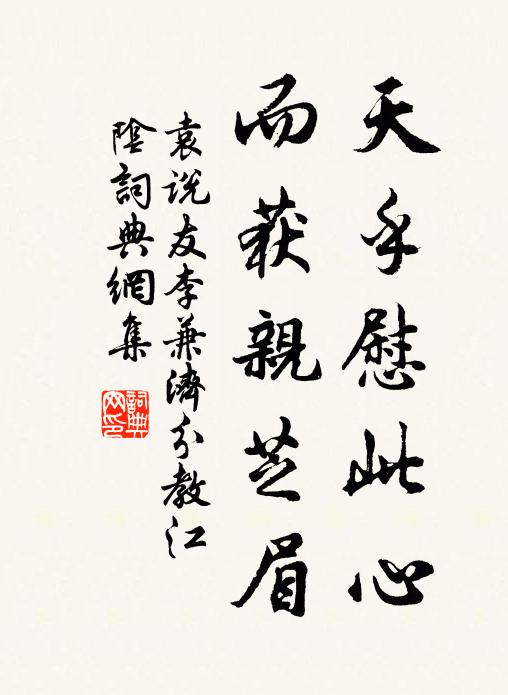 天乎慰此心
而获親芝眉
袁说友李兼濟分教江
陰詞典網集
詞典
网印